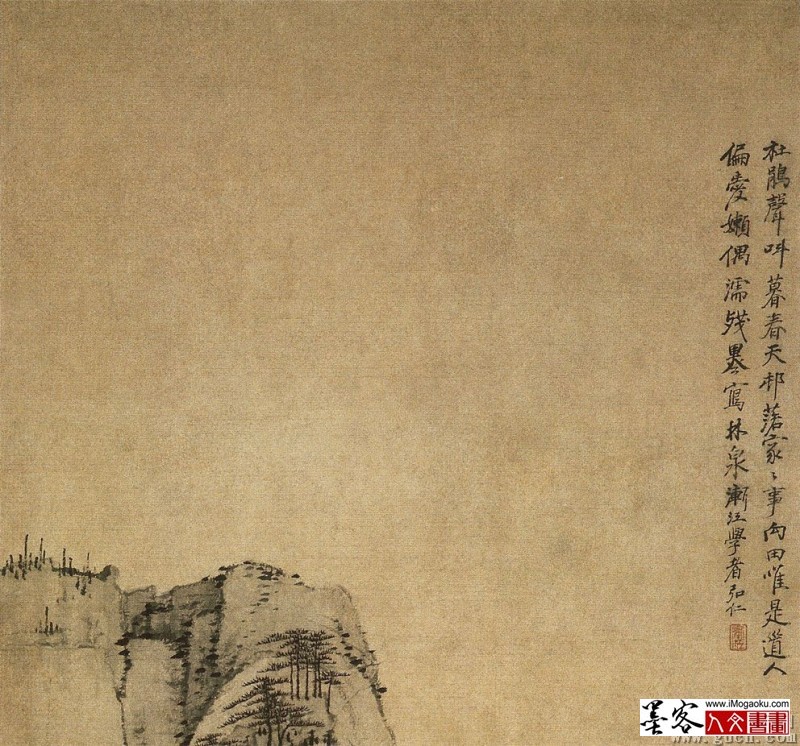 杜鵑聲叫暮春天邨落家〻事向田惟是道人
偏愛嬾偶濡殘墨寫林泉漸江學者弘仁
墨客
www.iMogaoku.com
人文書畫